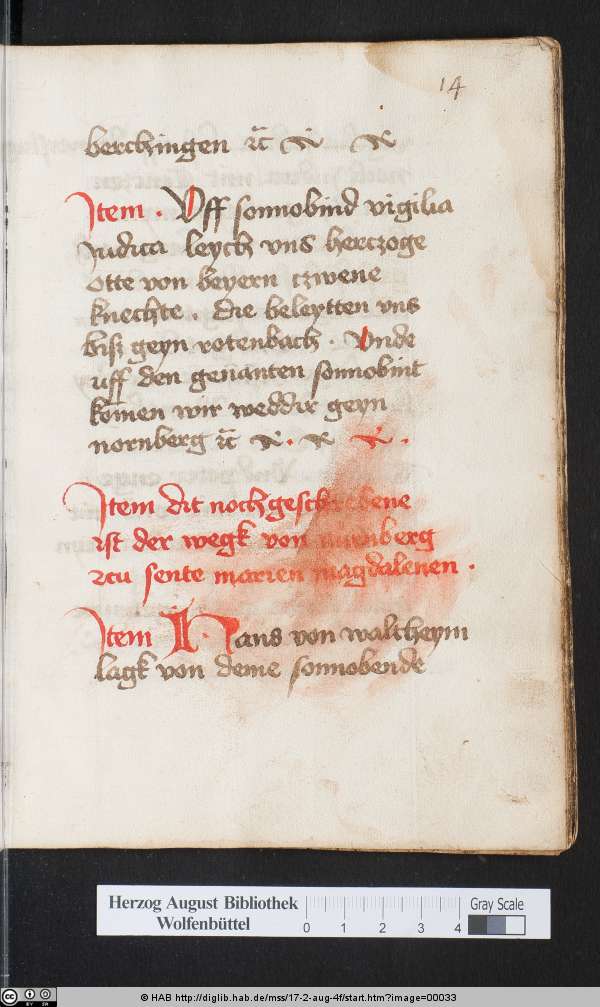 14
berchingen ꝛc̃
Item · Uff sonnobind vigilia
Judica leych vns herczoge
otte von beyern czwene
knechte · die beleytten vns
bisz geyn rotenbach · Unde
uff den genanten sonnobint
komen wir weddir geyn
nornberg ꝛc̃
Item dit nochgeschrebene
ist der wegk von nurenberg
zcu sente marien magdalenen ·
Item I · Hans von waltheym
lagk von deme sonnobende
Herzog August Bibliothek
Wolfenbüttel
0 1 2 3 4
Gray Scale
© HAB http://diglib.hab.de/mss/17-2-aug-4f/start.htm?image=00033